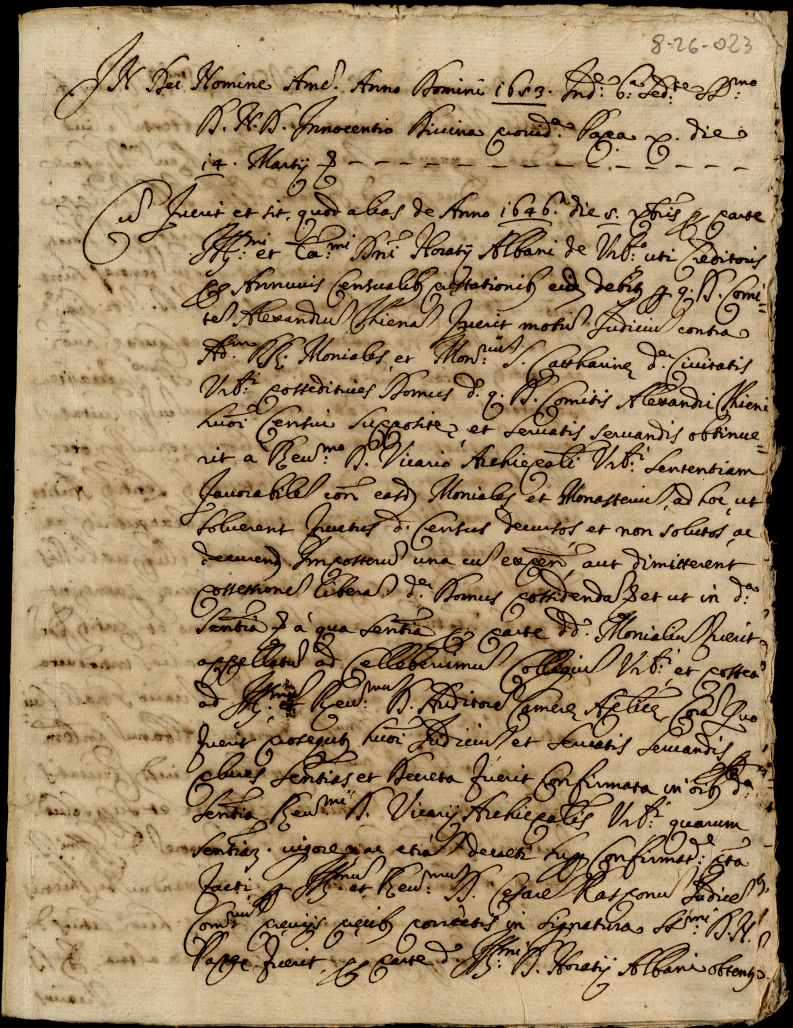 8-26-023
IN Dei Nomine Amen. Anno Domini 1653. Ind.e 6.a Sed.te SS.mo
D. N. D. Innocentio Divina provid.a Papa X. die
14. Martij
Cum fuerit et sit, quod alias de Anno 1646. die 5. Xbris p parte
Ill.mi et Cla.mi Dni Horatij Albani de Urb.o uti Creditoris
p Annuis Censualib prestationib eid debit p q. D. Comi=
tem Alexandrum Thiena fuerit motum Judicium contra
Ad. RR. Moniales, et Mon.rium S. Catharinę d.ę Civitatis
Urb.i posseditrices Domus d. q. D. Comitis Alexandri Thieni
huoi Censui suppositę, et servatis servandis obtinue=
rit a Reu.mo D. Vicario Archiepali Urb.i Sententiam
favorabilem con easd Moniales et Monasterium, ad hoc, ut
solverent fructus d. Census decursos et non solutos, ac
decurend Imposterum una cum expen, aut dimitterent
possessionem liberam d.ę Domus possidenda et ut in d.a
Sentia à qua Sentia p parte dd. Monialium fuerit
appellatum ad Celleberimum Collegium Urb.i et postea
ad Ill.mum et Reu.mum D. Auditorem Camerę Aplicę, Coram quo
fuerit prosequt huoi Judicium et servatis servandis
plures Sentias et Decreta fuerit Confirmata in oib d.a
Sentia Reu.mi D. Vicarij Archiepalis Urb.i quarum
Sentiar. vigore, ac etiam decreti Confirmat.
facti p Ill.mum et Reu.mum D. Cesare Rasponum Judicem
Com.rium previjs precib porrectis in Signatura SS.mi D.N.
Papę fuerit p parte d. Ill.mi D. Horatij Albani obtent